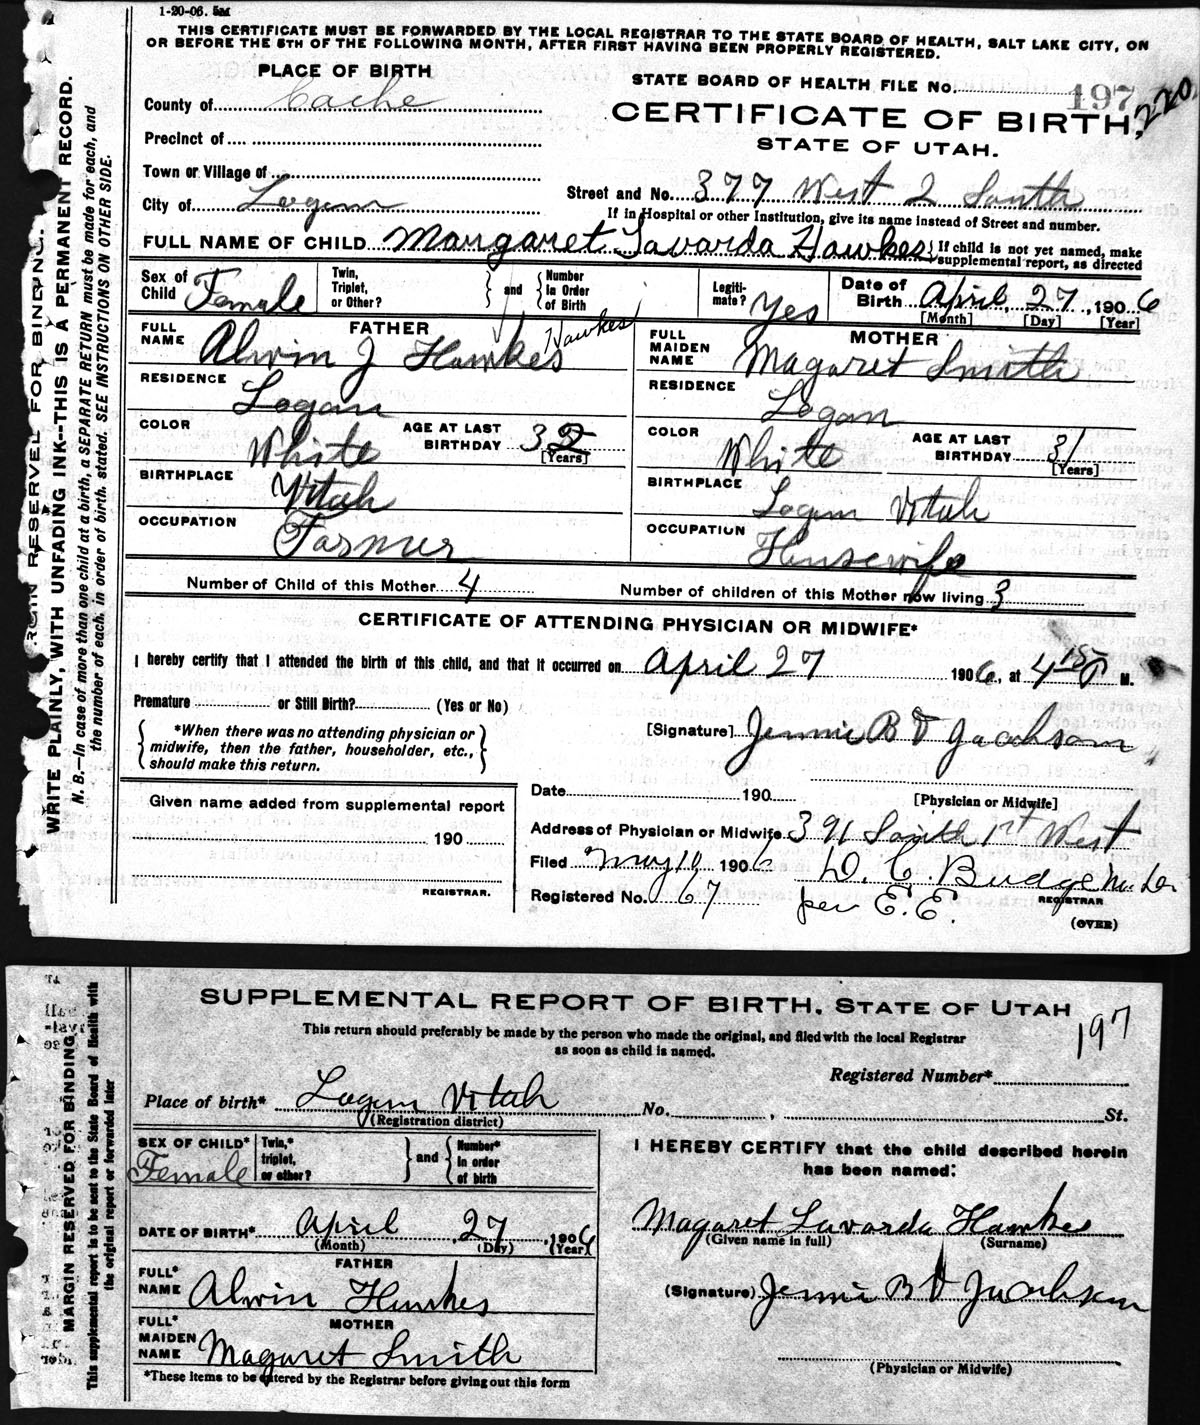 1-20-06. 5M
THIS CERTIFICATE MUST BE FORWARDED BY THE LOCAL REGISTRAR TO THE STATE BOARD OF HEALTH, SALT LAKE CITY, ON
OR BEFORE THE 5TH OF THE FOLLOWING MONTH, AFTER FIRST HAVING BEEN PROPERLY REGISTERED.
PLACE OF BIRTH
STATE BOARD OF HEALTH FILE No. 197 220
County of Cache
CERTIFICATE OF BIRTH,
Precinct of
STATE OF UTAH.
Town or Village of
Street and No. 377 West 2 South
City of Logan
If in Hospital or other Institution, give its name instead of Street and number.
FULL NAME OF CHILD Margaret Lavarda Hawkes } If child is not yet named, make supplemental report, as directed
Sex of Child Female Twin, Triplet, or Other? } and { Number in Order of Birth Legiti-mate? Yes Date of Birth April 27, 1906
[Month] [Day] [Year]
FATHER
FULL NAME Alwin J Hawkes Hawkes
MOTHER
FULL MAIDEN NAME Magaret Smith
RESIDENCE Logan
RESIDENCE Logan
COLOR White AGE AT LAST BIRTHDAY 32 [Years]
COLOR White AGE AT LAST BIRTHDAY 31 [Years]
BIRTHPLACE Utah
BIRTHPLACE Logan Utah
OCCUPATION Farmer
OCCUPATION Housewife
Number of Child of this Mother 4 Number of children of this Mother now living 3
CERTIFICATE OF ATTENDING PHYSICIAN OR MIDWIFE*
I hereby certify that I attended the birth of this child, and that it occurred on April 27 1906, at 4 15 M.
Premature or Still Birth? (Yes or No)
*When there was no attending physician or
midwife, then the father, householder, etc.,
should make this return.
[Signature] Jennie B Jacobson
Date 190
[Physician or Midwife]
Given name added from supplemental report
190
REGISTRAR.
Address of Physician or Midwife 391 South 1st West
Filed May 10 1906 D. C. Budge
Registered No. 67 per E. E.
REGISTRAR
(OVER)
MARGIN RESERVED FOR BINDING.
WRITE PLAINLY, WITH UNFADING INK--THIS IS A PERMANENT RECORD.
N. B.—In case of more than one child at a birth, a SEPARATE RETURN must be made for each, and
the number of each, in order of birth, stated. SEE INSTRUCTIONS ON OTHER SIDE.
SUPPLEMENTAL REPORT OF BIRTH. STATE OF UTAH
197
This return should preferably be made by the person who made the original, and filed with the local Registrar
as soon as child is named.
Registered Number*
Place of birth* Logan Utah No. , St.
(Registration district)
SEX OF CHILD* Female Twin,* triplet, or other? } and { Number* in order of birth
I HEREBY CERTIFY that the child described herein
has been named:
DATE OF BIRTH* April 27, 1906
(Month) (Day) (Year)
Magaret Lavarda Hawkes
(Given name in full) (Surname)
FATHER
FULL* NAME Alwin Hawkes
(Signature) Jennie B Jacobson
MOTHER
FULL* MAIDEN NAME Magaret Smith
(Physician or Midwife)
*These items to be entered by the Registrar before giving out this form
MARGIN RESERVED FOR BINDING
This supplemental report is to be sent to the State Board of Health with
the original report or forwarded later